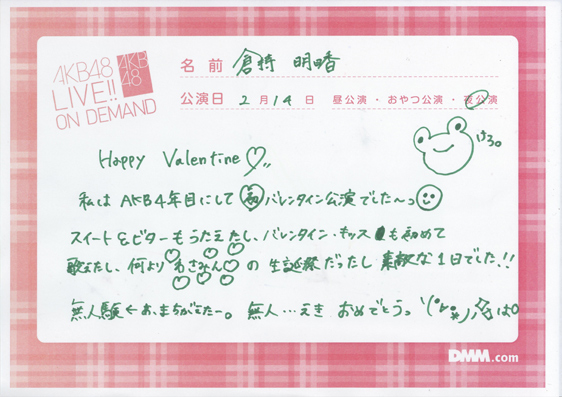 AKB48
LIVE!!
ON DEMAND
AKB
48
名前 倉持 明日香
公演日 2月14日 昼公演・おやつ公演・夜公演
けろ。
Happy Valentine♡
私は AKB4年目にして 初 バレンタイン公演でした〜っ
スイート&ビターもうたえたし、バレンタイン・キッスも初めて
歌えたし、何より わさみん の 生誕祭だったし 素敵な1日でした!!
無人験←あ、まちがえたー。 無人…えき おめでとうっ
DMM.com